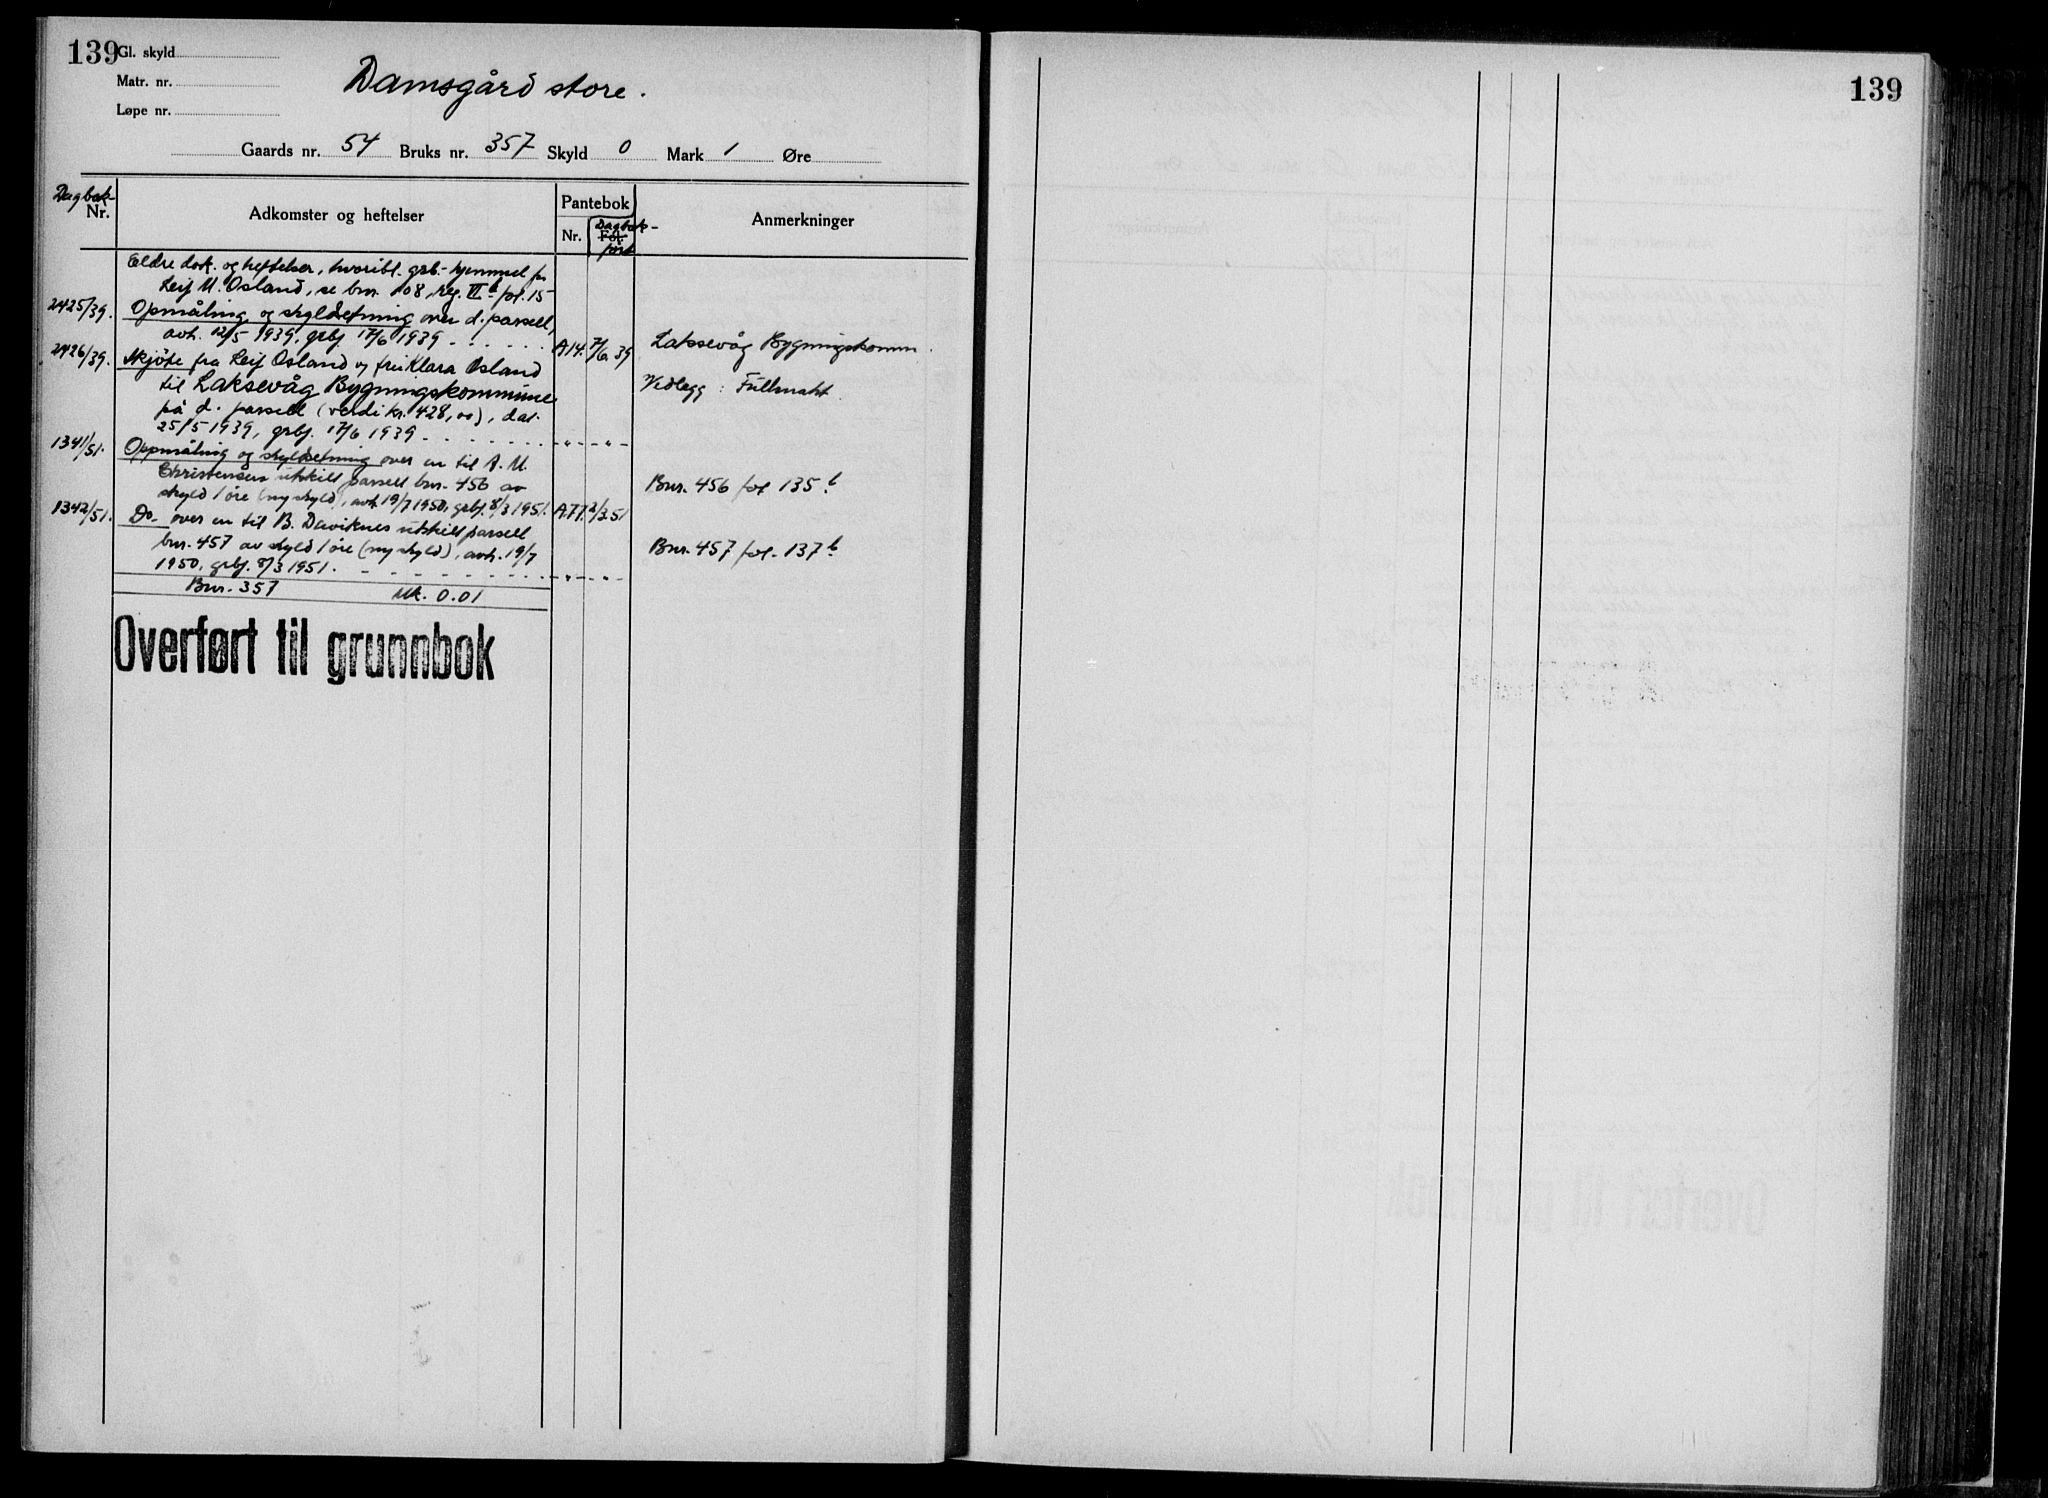 139
Gl. skyld
Matr. nr.
Løpe nr.
Damsgård store.
Gaards nr. 54 Bruks nr. 357 Skyld 0 Mark 1 Øre
Dagbok-
Nr.
Adkomster og heftelser
Pantebok
Nr.
Dagbok-
Fol.
ført
Anmerkninger
Eldre dok. og heftelser, hvoribl. grb.-hjemmel for
Leif M. Osland, se bnr. 108, reg. VI b fol. 15
2425/39. Opmåling og skyldsetning over d. parsell,
avh. 12/5 1939, grbj. 17/6 1939 A14. 7/6.39 Laksevåg Bygningskomm.
2426/39. Skjöte fra Leif Osland og fru Klara Osland
til Laksevåg Bygningskommune Vedlegg: Fullmakt.
på d. parsell (verdi kr. 428,00), dat.
25/5 1939, grbj. 17/6 1939 - " - " -
1341/51. Oppmåling og skyldsetning over en til A. M.
Christensen utskilt parsell bnr. 456 av Bnr. 456 fol 135 b
skyld 1 øre (ny skyld), avh. 19/7 1950, grbj. 8/3 1951. A.77. 2/3.51
1342/51. Do- over en til B. Daviknes utskilt parsell
bnr. 457 av skyld 1 øre (ny skyld), avh. 19/7 Bnr. 457 fol. 137 b
1950, grbj. 8/3 1951. - " - " -
Bnr. 357 Mk. 0.01
Overført til grunnbok
139